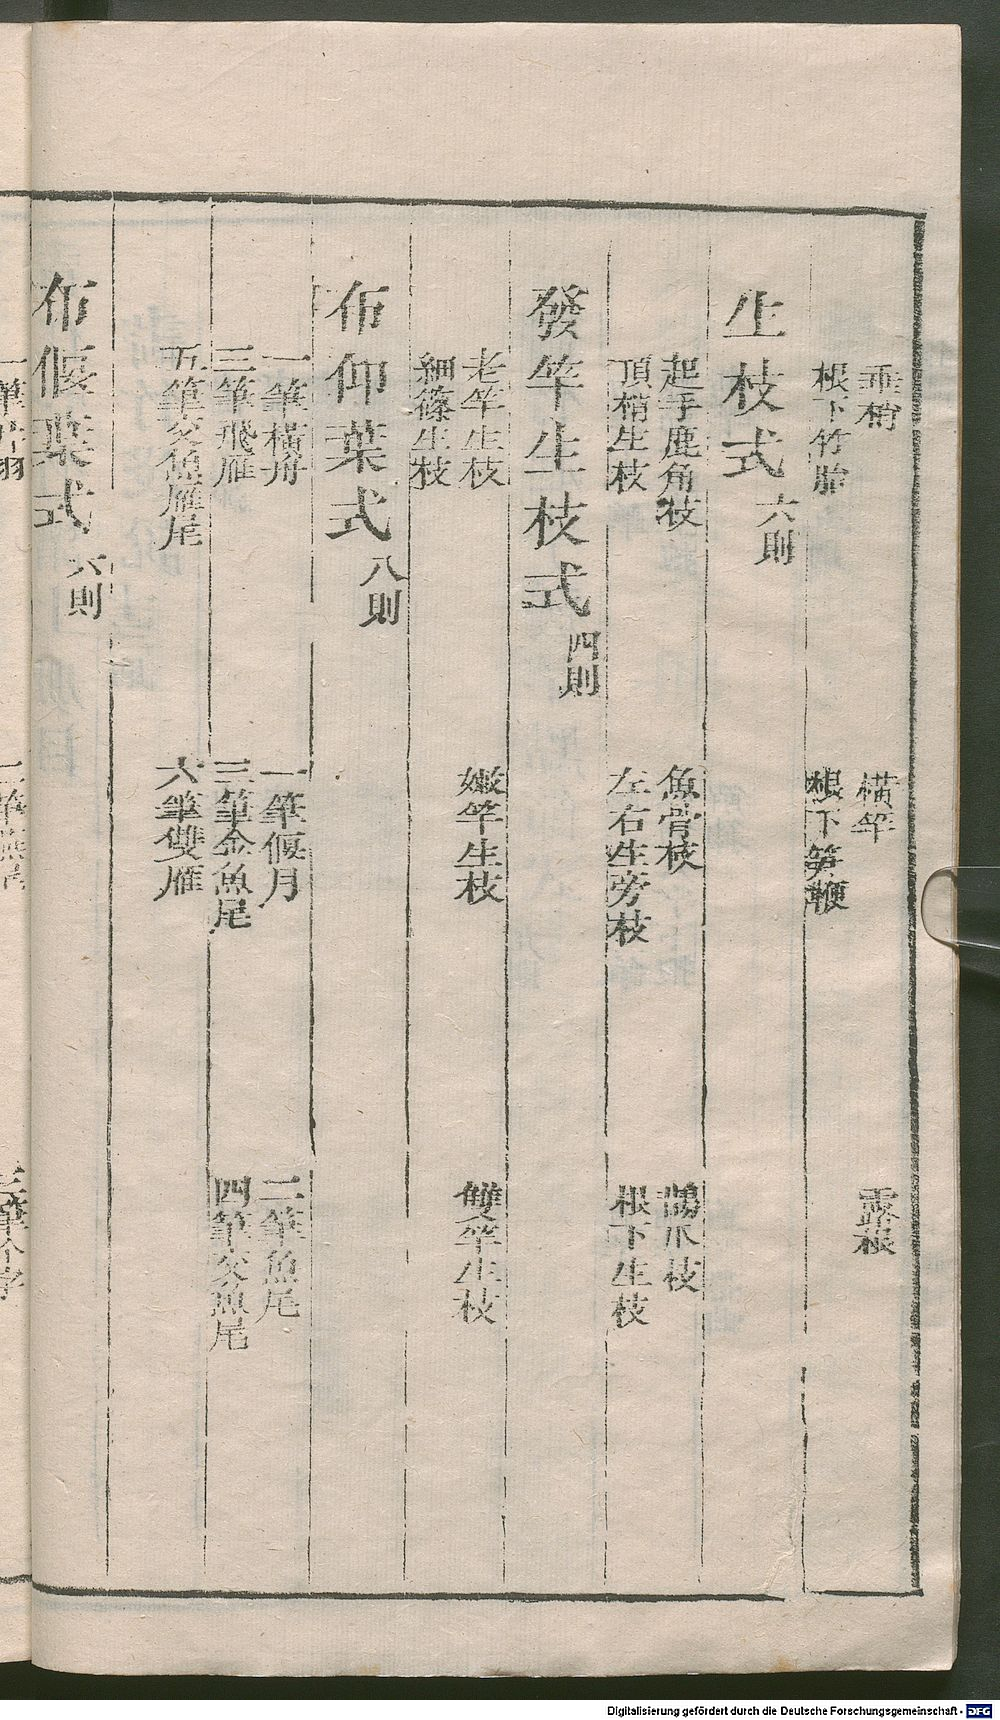 垂梢　橫竿　露根
根下竹胎　根下笋鞭
生枝式六則
起手鹿角枝　魚骨枝　鵲爪枝
頂梢生枝　左右生旁枝　根下生枝
發竿生枝式四則
老竿生枝　嫩竿生枝　雙竿生枝
細篠生枝
布仰葉式八則
一筆橫舟　一筆偃月　二筆魚尾
三筆飛雁　三筆金魚尾　四筆交魚尾
五筆交魚雁尾　六筆雙雁
布偃葉式六則
一筆　二筆　三筆个字
Digitalisierung gefördert durch die Deutsche Forschungsgemeinschaft - DFG